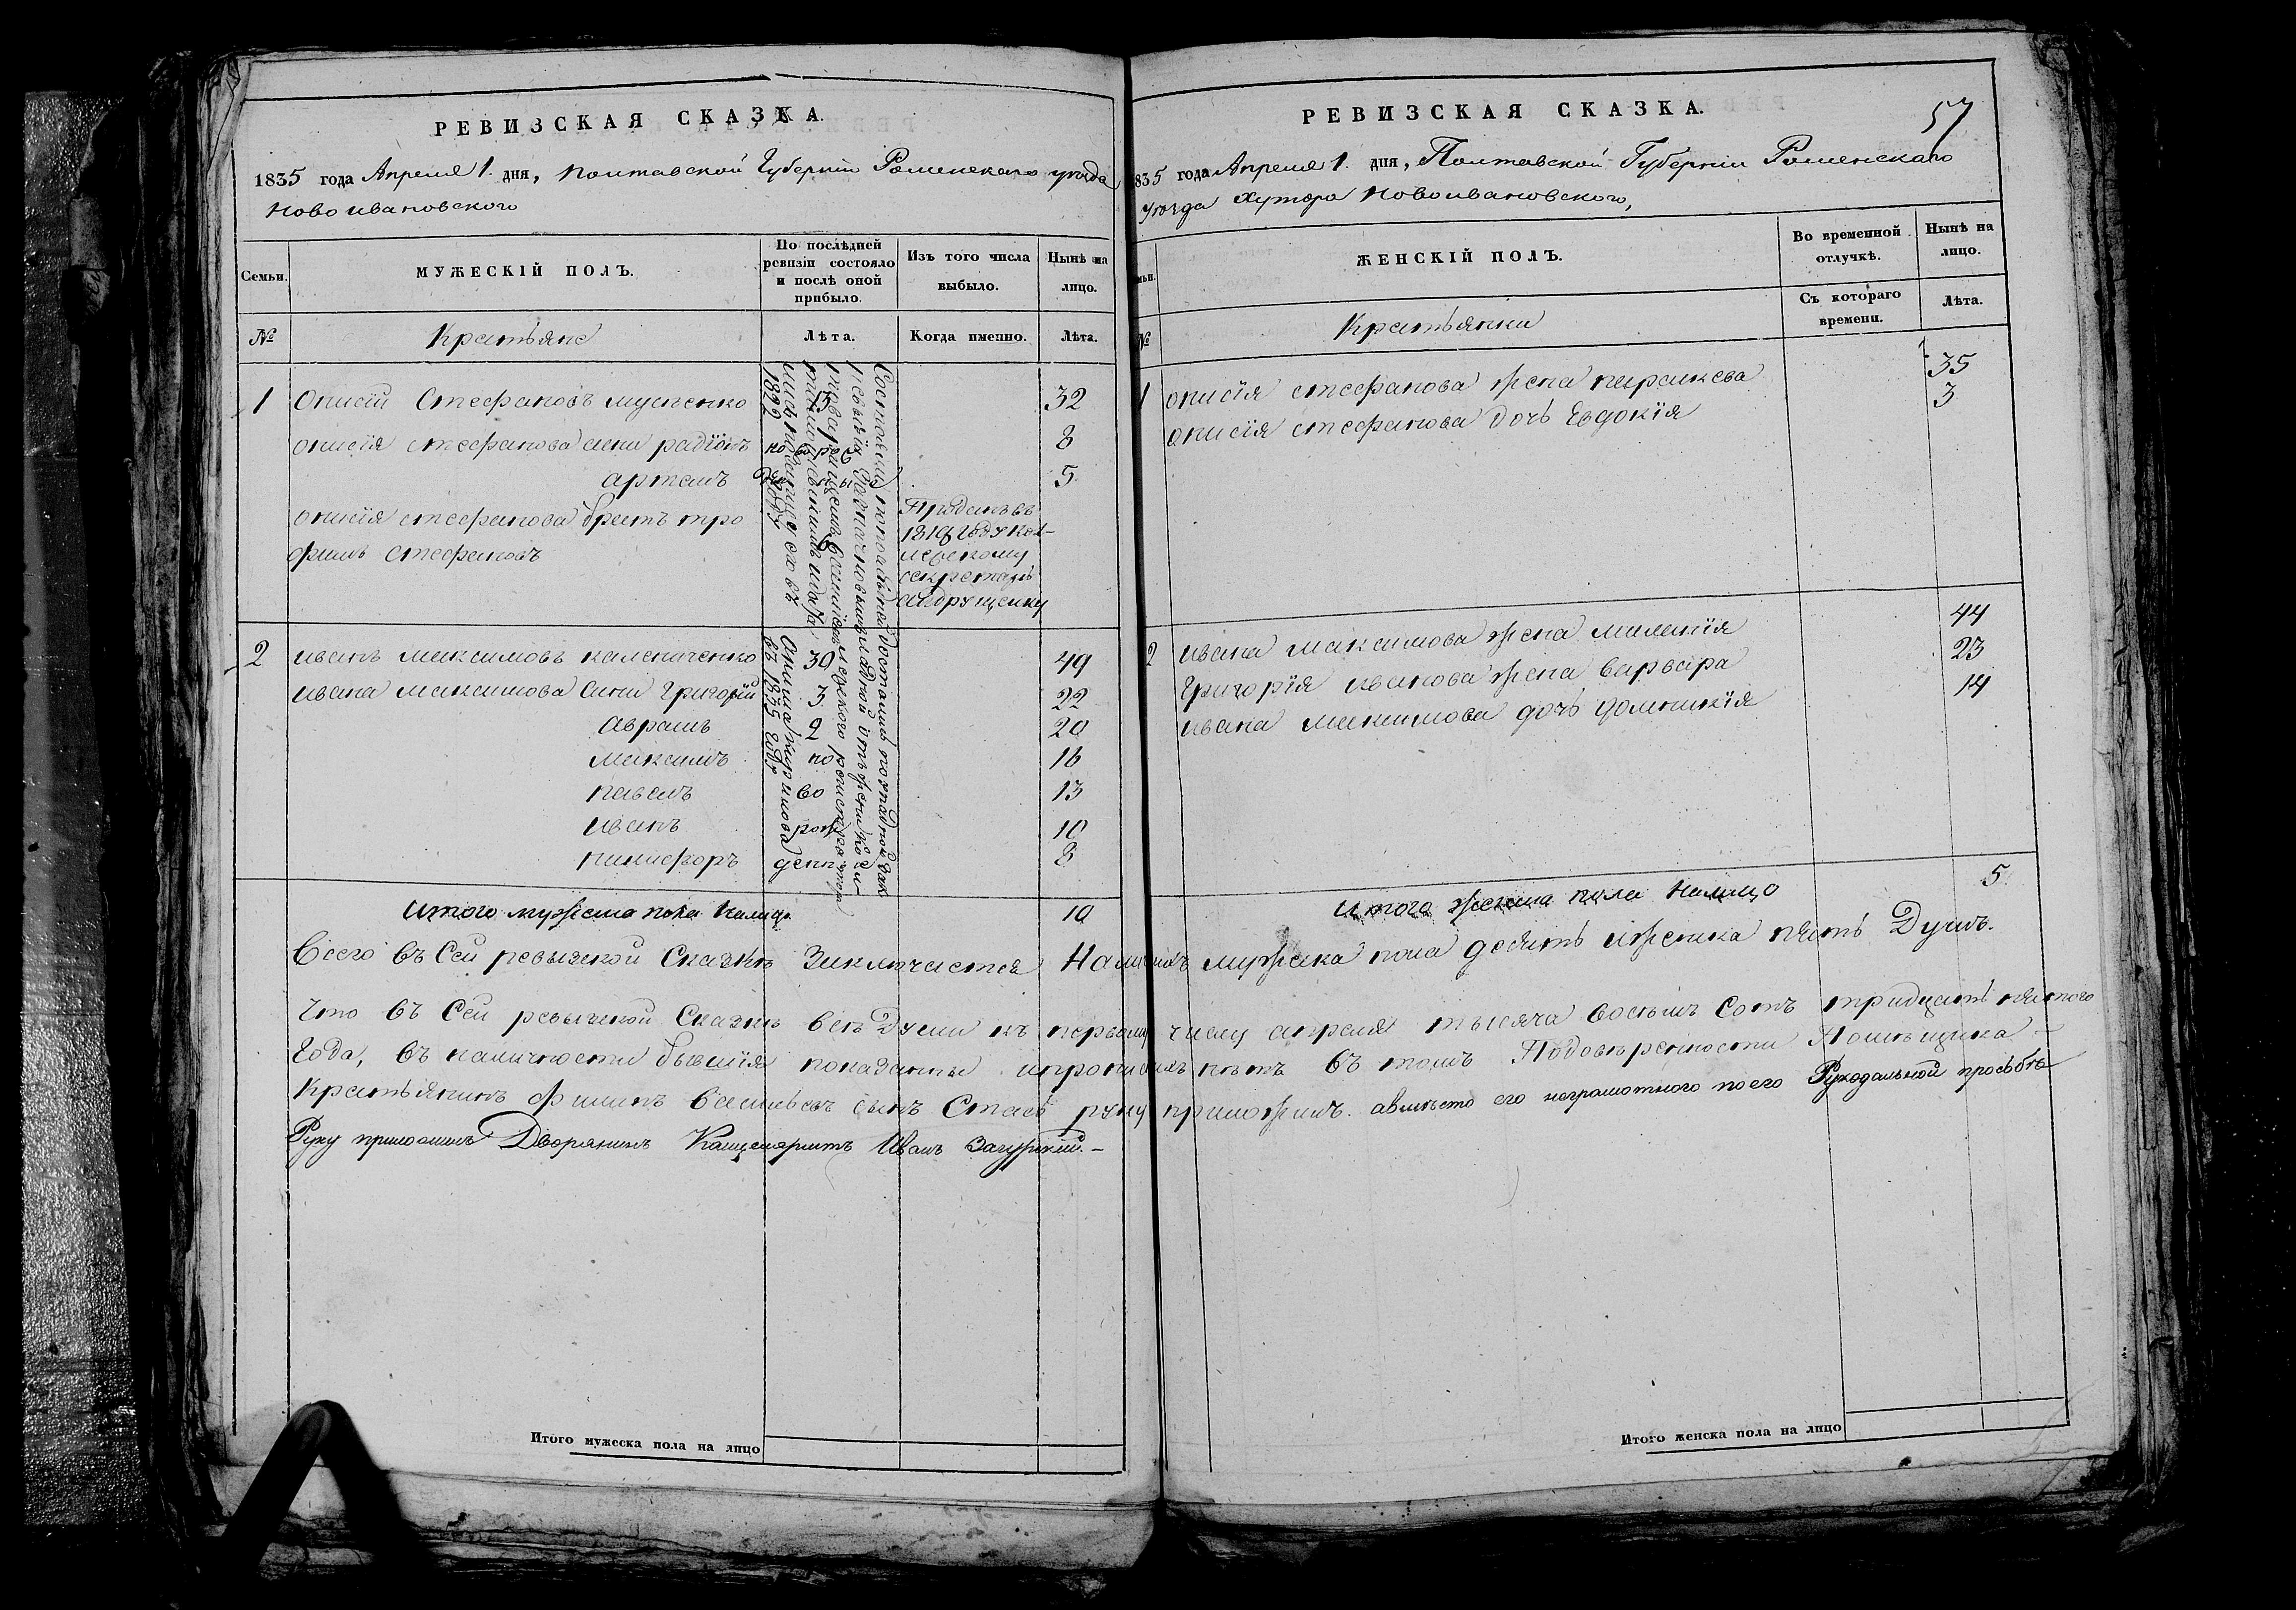 РЕВИЗСКАЯ СКАЗКА.
1835 года Апреля 1. дня, Полтавской Губерніи Роменскаго уезда
Новоивановского
Семьи.
МУЖЕСКІЙ ПОЛЪ.
По послѣдней ревизіи состояло и послѣ оной прибыло.
Изъ того числа выбыло.
Нынѣ на лицо.
№
Крестьяне
Лѣта.
Когда именно.
Лѣта.
1 Онисій Стефановъ 32
онисія стефанова сини радіонъ новорож 8
артемъ 5
онисія стефанова братъ тро
фимъ стефановъ
Проданъ въ
1818 году кол-
лежскому
секретарь
Андрущенку
2 иванъ максимовъ калениченко 39 49
ивана максимова сини Григорій 3 22
аврамъ 2 20
максимъ но 16
павелъ во 13
иванъ рож 10
никифоръ денн 8
въ 1835 году
1822 году
Итого мужеска пола налицо 10
РЕВИЗСКАЯ СКАЗКА.
57
835 года Апреля 1. дня, Полтавской Губерніи Роменскаго
уезда Хутора Новоивановского,
ЖЕНСКІЙ ПОЛЪ.
Во временной отлучкѣ.
Нынѣ на лицо.
№
Крестьянки
Съ котораго времени.
Лѣта.
1 онисія стефанова жена параскева 35
онисія стефанова дочь Евдокія 3
2 ивана максимова жена меланія 44
Григорія иванова жена варвара 23
ивана максимова дочь домникія 14
Итого женска пола налицо 5
Всего въ Сей ревызской Сказки Заключается Наличнихъ мужеска пола десять иженска пять Душъ.
Что въ Сей ревызской Сказки всѣ Души къ первому числу апреля тысяча восемъ сотъ тридцать пятого
Года, въ наличности бывшія показанны ипрописнихъ нетъ въ томъ Подоверенности Помещика
Крестьянинъ Филипъ сынъ руку приложилъ. авместо его неграмотного поего Рукодальной просьбѣ
Руку приложилъ Дворянинъ Канцеляристъ Иванъ
Итого мужеска пола на лицо
Итого женска пола на лицо